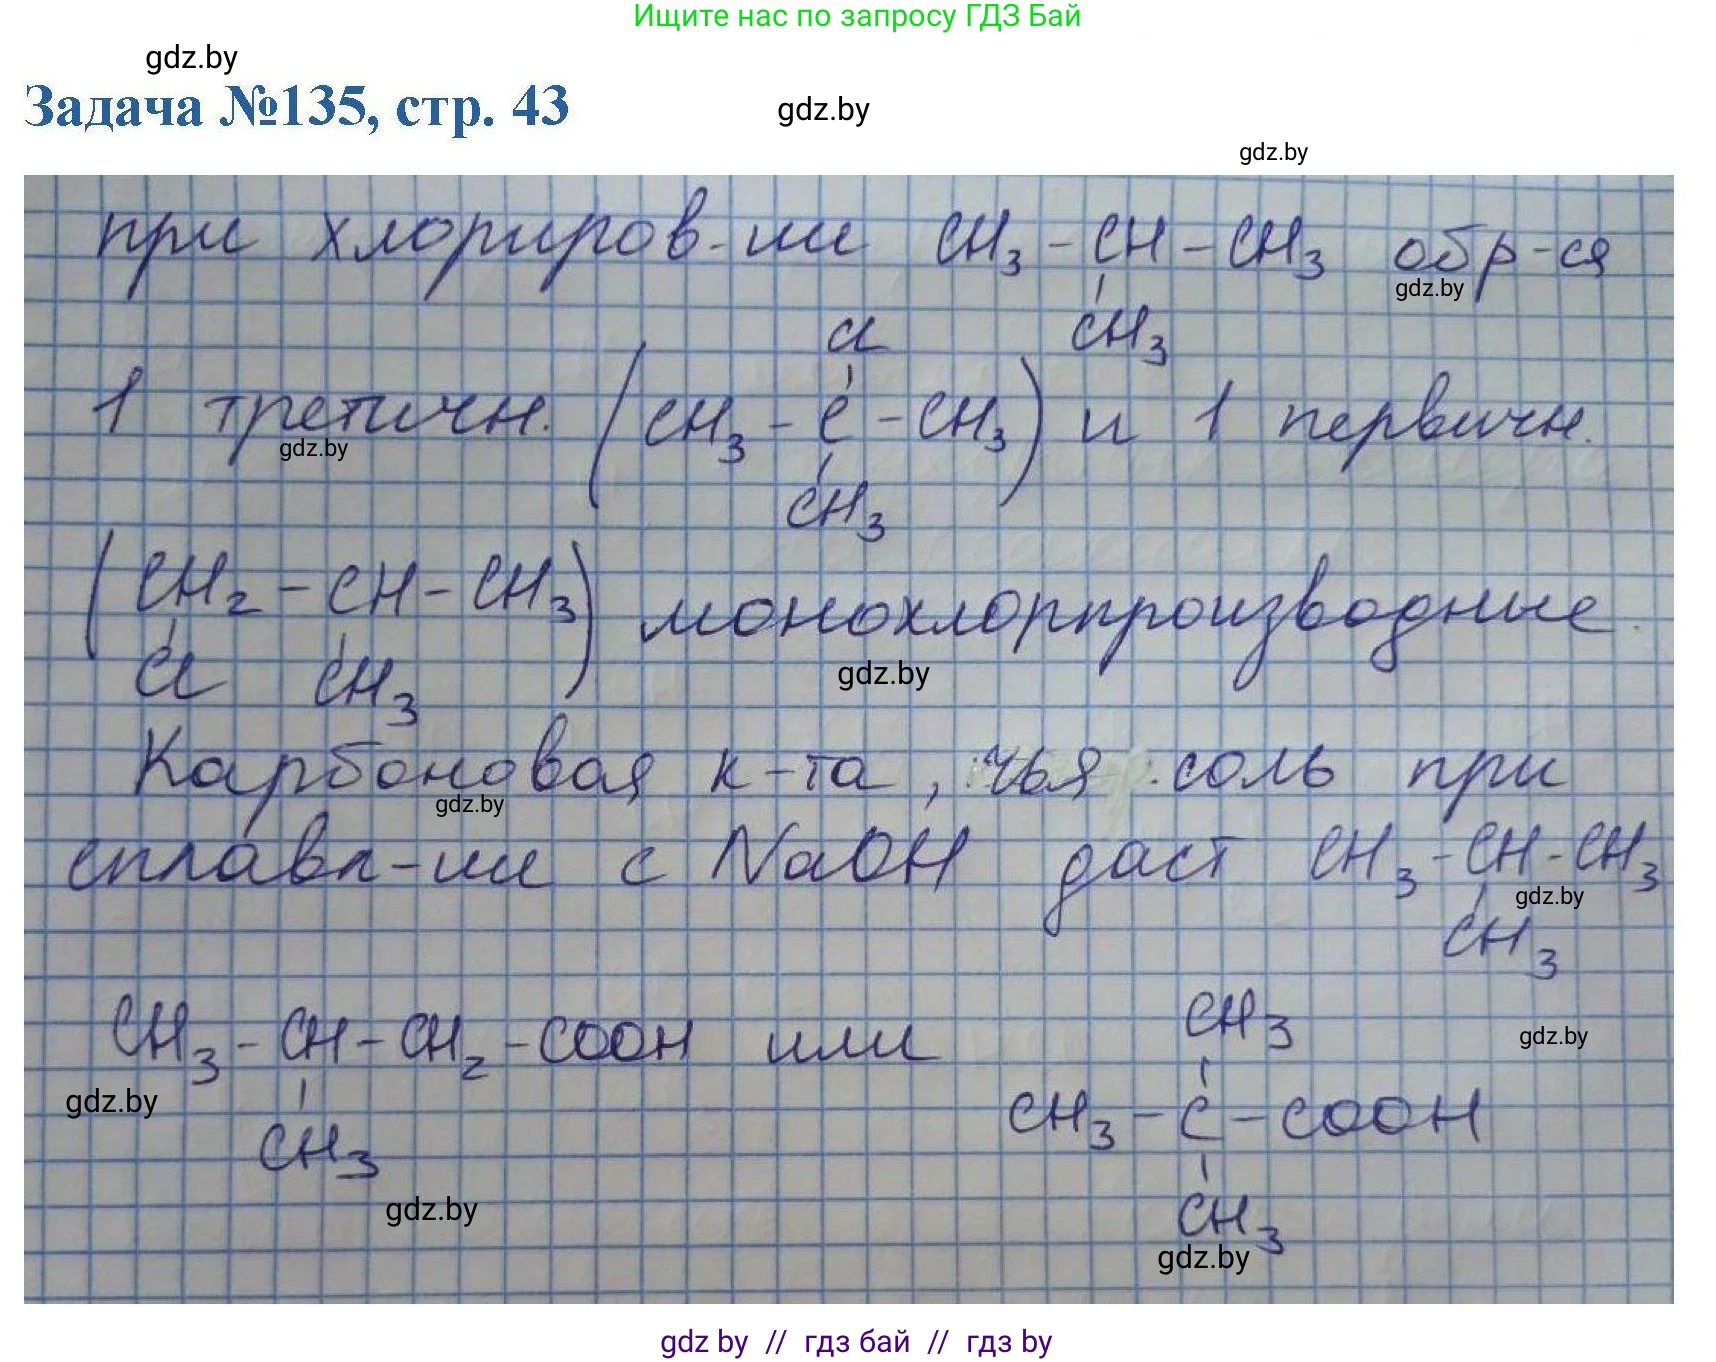 Ищите нас по запросу ГДЗ Бай
gdz.by
Задача №135, стр. 43
gdz.by
gdz.by
при хлориров-ии CH3 - CH - CH3 обр-ся
gdz.by
Cl CH3
1 третичн. (CH3 - C - CH3) и 1 первичн.
gdz.by
CH3
(CH2 - CH - CH3) монохлорпроизводные.
Cl CH3
gdz.by
Карбоновая к-та, чья соль при
gdz.by
сплавл-ии с NaOH даст CH3 - CH - CH3
gdz.by
CH3
CH3
CH3 - CH - CH2 - COOH или
gdz.by
gdz.by
CH3 - C - COOH
CH3
gdz.by
CH3
gdz.by
gdz by // гдз бай // гдз by